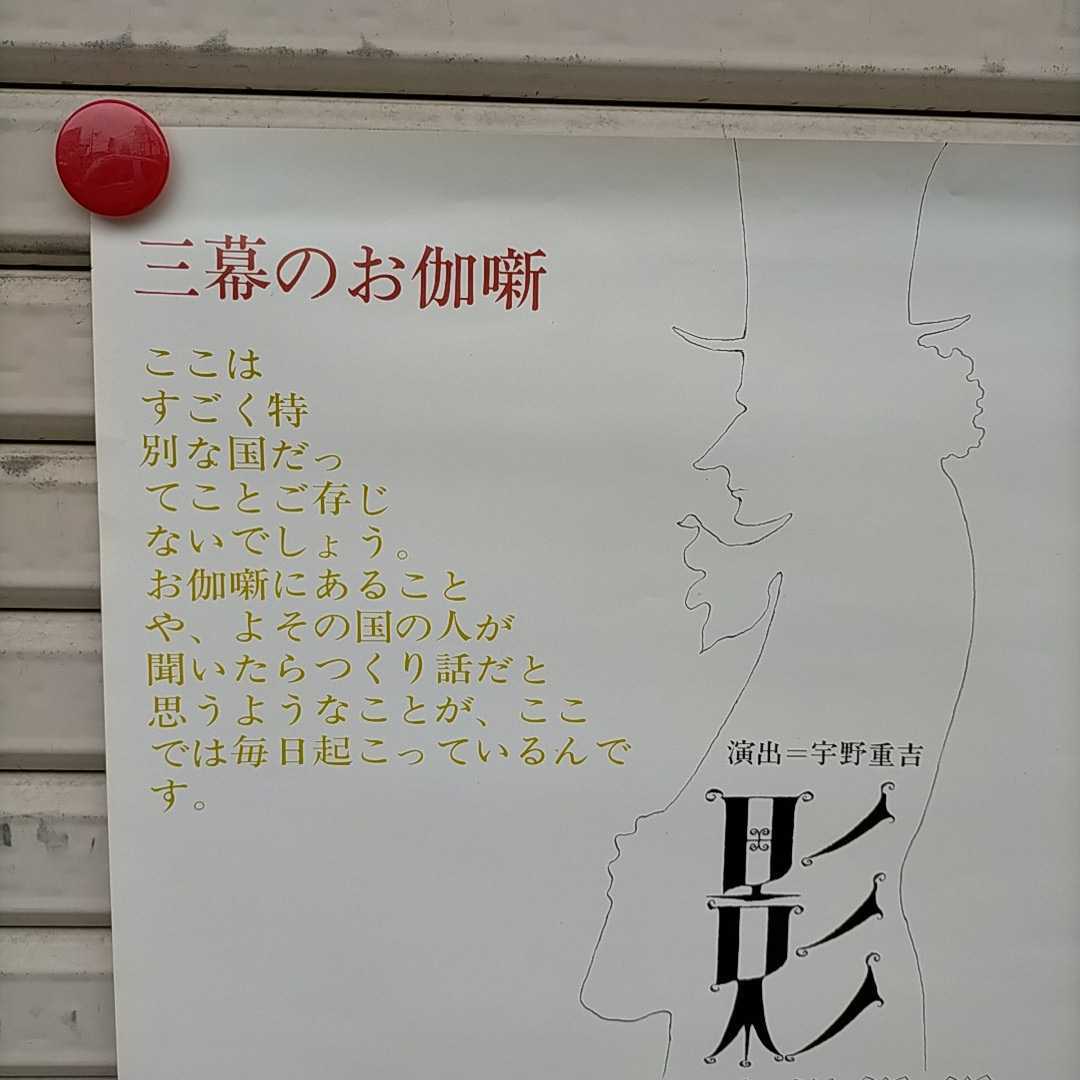 三幕のお伽噺
ここは
すごく特
別な国だっ
てことご存じ
ないでしょう。
お伽噺にあること
や、よその国の人が
聞いたらつくり話だと
思うようなことが、ここ
では毎日起こっているんで
す。
演出＝宇野重吉
影